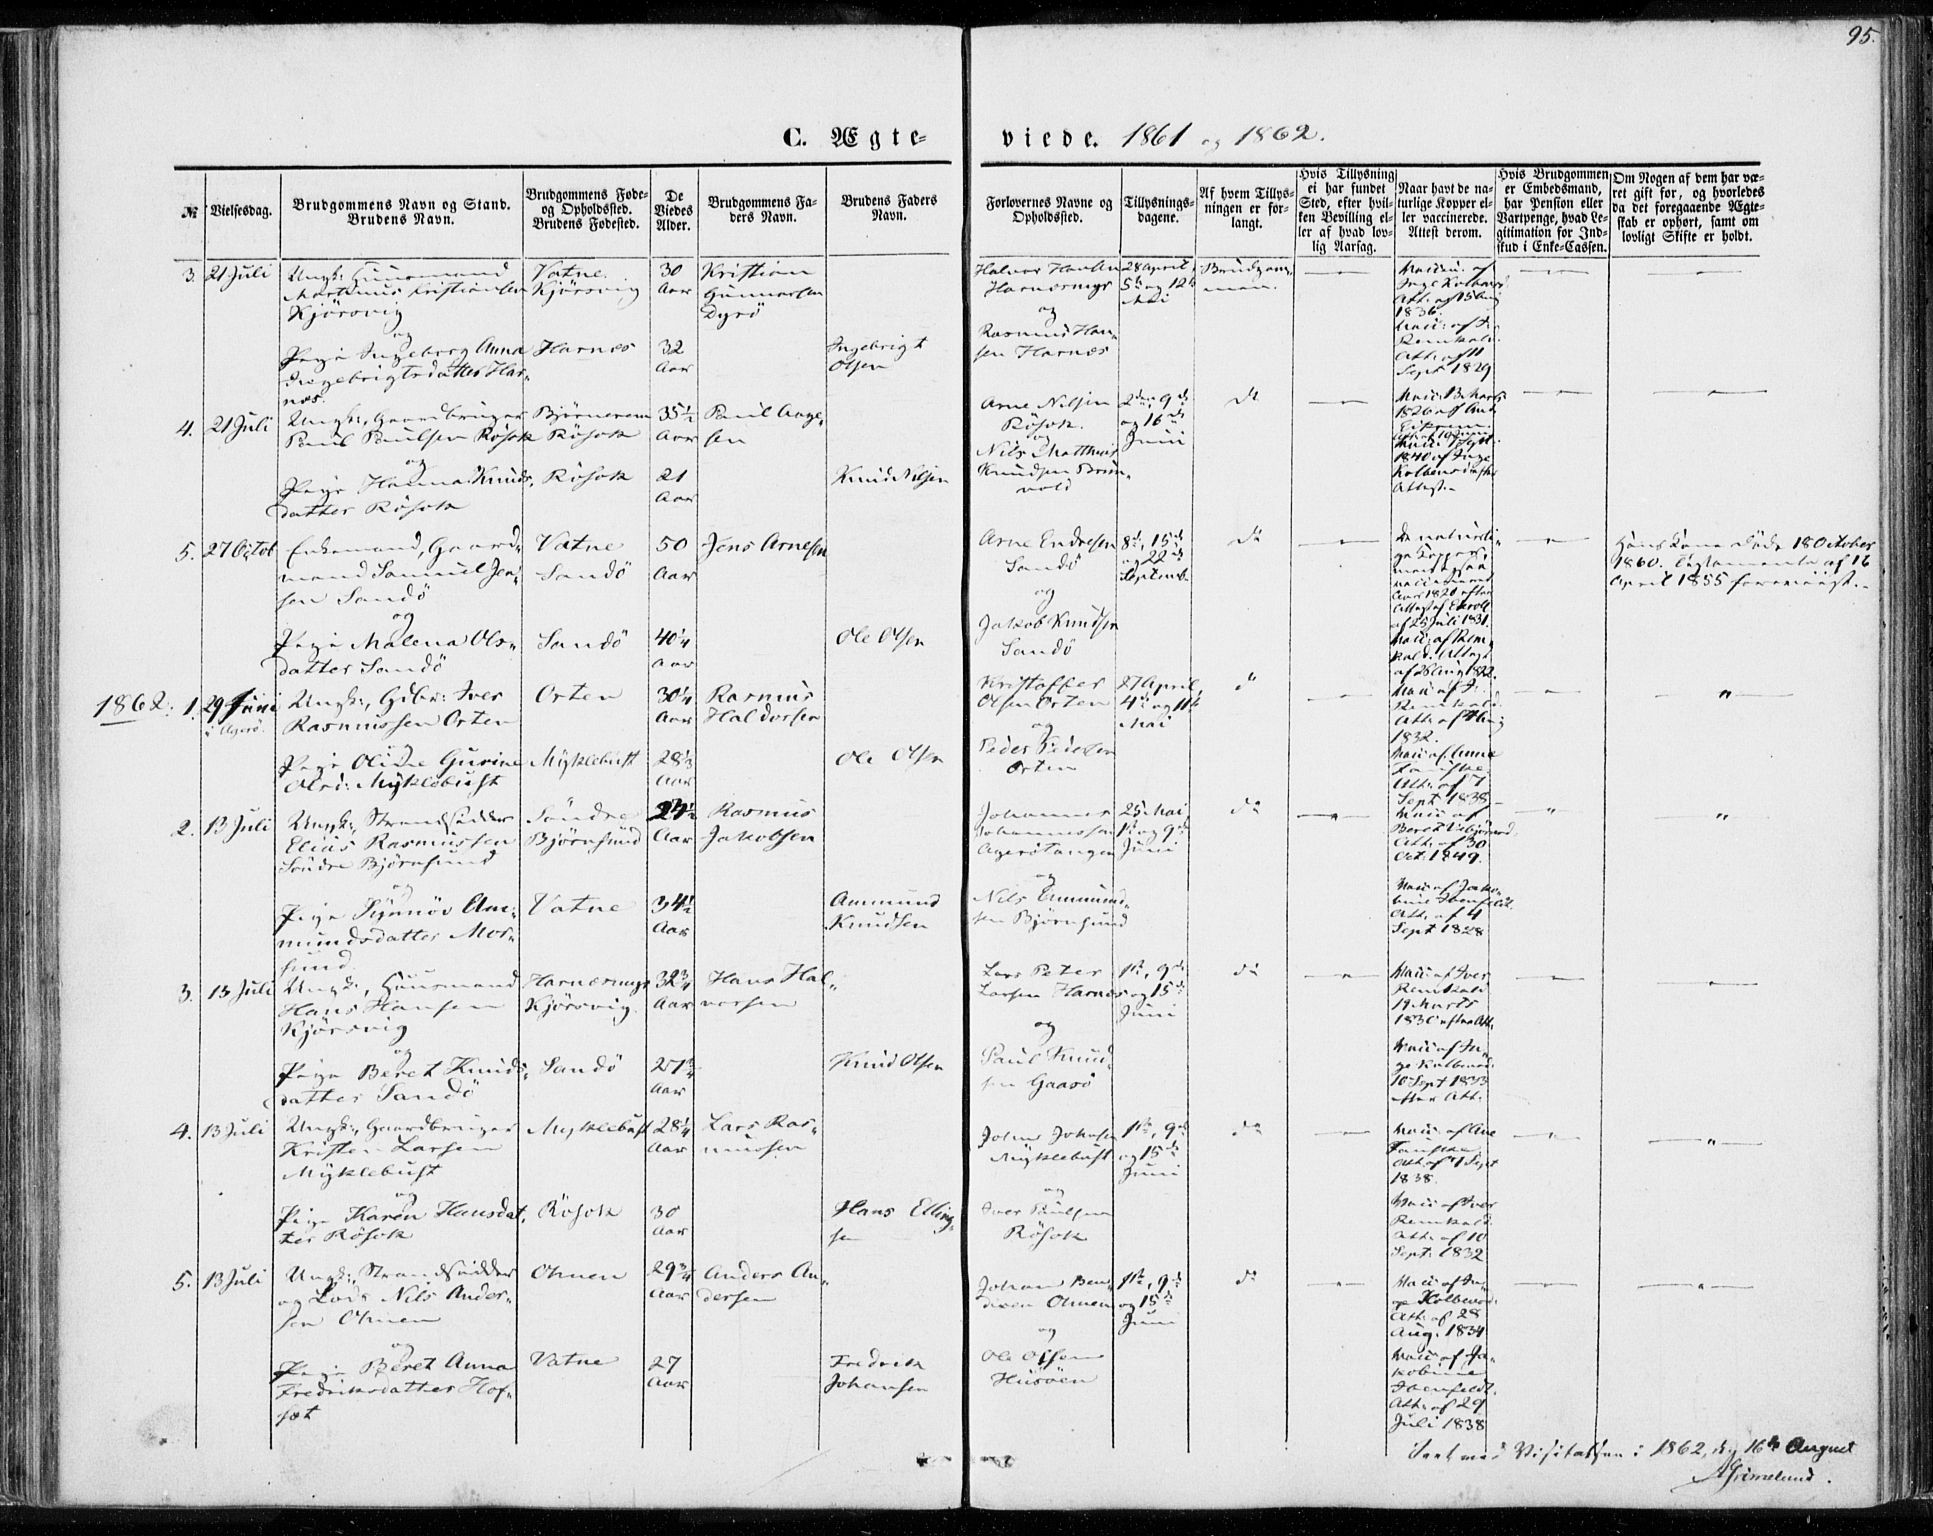 95.
C. Ægte-
viede. 1861 og 1862.
№
Vielsesdag.
Brudgommens Navn og Stand.
Brudens Navn.
Brudgommens Føde-
og Opholdssted.
Brudens Fødested.
De
Viedes
Alder.
Brudgommens Fa-
ders Navn.
Brudens Faders
Navn.
Forlovernes Navne og
Opholdssted.
Tillysnings-
dagene.
Af hvem Tillys-
ningen er for-
langt.
Hvis Tillysning
ei har fundet
Sted, efter hvil-
ken Bevilling el-
ler af hvad lov-
lig Aarsag.
Naar havt de na-
turlige Kopper el-
ler vaccinerede.
Attest derom.
Hvis Brudgommen
er Embedsmand,
har Pension eller
Vartpenge, hvad Le-
gitimation for Ind-
skud i Enke-Cassen.
Om Nogen af dem har væ-
ret gift før, og hvorledes
da det foregaaende Ægte-
skab er ophørt, samt om
lovligt Skifte er holdt.
3. 21 Juli
Ungk: Huusmand
Martinus Kristiansen
Kjörsvig
og
Pige Ingeborg Anna
Ingebrigtsdatter Har-
næs.
Vatne.
Kjörsvig
Harnæs
30
Aar
32
Aar
Kristian
Gunnarsen
Dyrö
Ingebrigt
Olsen
Halvor Hansen
Harnæsmyr
og
Rasmus Han-
sen Harnæs
28 April,
5te og 12te
Mai
Brudgom-
men.
Vacci: af
Inge Kolbens
Att. af 15 Aug
1836.
Vacc: af I.
Remkald.
Att. af 11
Sept 1829
4. 21 Juli
Ungk:, Gaardbruger
Poul Poulsen Rösok
og
Pige Hanna Knuds-
datter Rösok
Björnerem
Rösok
Rösok
35½
Aar
21
Aar
Poul Aage-
sen
Knud Nilsen
Arne Nilsen
Rösok.
og
Nils Matthias
Knudsen
2den, 9de
og 16de
Juni
do
1840 af Inge
5. 27 Octob
Enkemand, Gaard-
mand Samuel Jen-
sen Sandö
og
Pige Malena Ols-
datter Sandö
Vatne
Sandö
Sandö
50
Aar
40¼
Aar
Jens Arnesen
Ole Olsen
Arne Endresen
Sandö
og
Jakob Knudsen
Sandö
8de, 15de
og 22de
Septemb.
do
De naturli-
ge Kopper
Aar 1820 efter
Attest af
af 25 Juli 1831.
Vacc: af Rem-
kald. Attest
af 28 Aug 1822.
Hans Kone døde 18 October
1860. Testamente af 16
April 1855 foreviist.
1862. 1. 29 Juni
i Agerö.
Ungk:, Gdbr: Iver
Rasmussen Orten
Pige Oline Gurine
Olsd: Myklebust
Orten
Myklebust
30¼
Aar
28⅓
Aar
Rasmus
Haldorsen
Ole Olsen
Kristoffer
Olsen Orten
og
Peder Pedersen
Orten
27 April,
4de og 11te
Mai
do
Vacc af I.
Remkald.
Att. af
1832.
Vacc af Anna
Att. af 7
Sept 1838
2. 13 Juli
Ungk:, Strandsidder
Elias Rasmussen
Söndre Björnsund
og
Pige Synnöv Am-
mundsdatter Mor-
sund
Söndre
Björnsund
Vatne
24½
Aar
34½
Aar
Rasmus
Jakobsen
Ammund
Knudsen
Johannes
Johannessen
Agerötangen
og
Nils Ammund-
sen Björnsund
25 Mai,
1ste og 9de
Juni
do
Vacc af
Att. af 30
Oct. 1849.
Vacc af Jako-
bine Ibenfeldt.
Att. af 4
Sept 1828
3. 13 Juli
Ungk:, Huusmand
Hans Hansen
Kjörsvig
og
Pige Beret Knuds-
datter Sandö
Harnæsmyr
Kjörsvig.
Sandö
32¾
Aar
Aar
Hans Hal-
vorsen
Knud Olsen
Lars Peter
Larsen Harnæs
og
Paul Knud-
sen Gaasö
1ste, 9de
og 15de
Juni
do
Vacc af Iver
Remkald
19 Marts
1830 efter Att.
Vacc af In-
ge Kolbens
10 Sept 1833
efter Att.
4. 13 Juli
Ungk:, Gaardbruger
Kristen Larsen
Myklebust
og
Pige Karen Hansdat-
ter Rösok
Myklebust
Rösok
28¼
Aar
30
Aar
Lars Ras-
mussen
Hans Elling-
sen
John Johnsen
Myklebust
og
Iver Paulsen
Rösok
1ste, 9de
og 15de
Juni
do
Vacc af Ane
Att. af 7 Sept
1838.
Vacc af Iver
Remkald.
Att. af 10
Sept. 1832
5. 13 Juli
Ungk:, Strandsidder
og Lods Nils Anders-
sen Ohnen
og
Pige Beret Anna
Fredriksdatter Hof-
sæt
Ohnen
Vatne
29¾
Aar
27
Aar
Anders An-
dersen
Fredrik
Johansen
Johan Ben-
dixen Ohnen
og
Ole Olsen
Husöen
1ste, 9de
og 15de
Juni
do
Vacc af In-
ge Kolbens.
Att. af 28
Aug. 1834
Vacc af Ja-
kobine
Ibenfeldt.
Att. af 29
Juli 1838
Seet ved Visitatsen i 1862, d. 16de August
Grimelund.